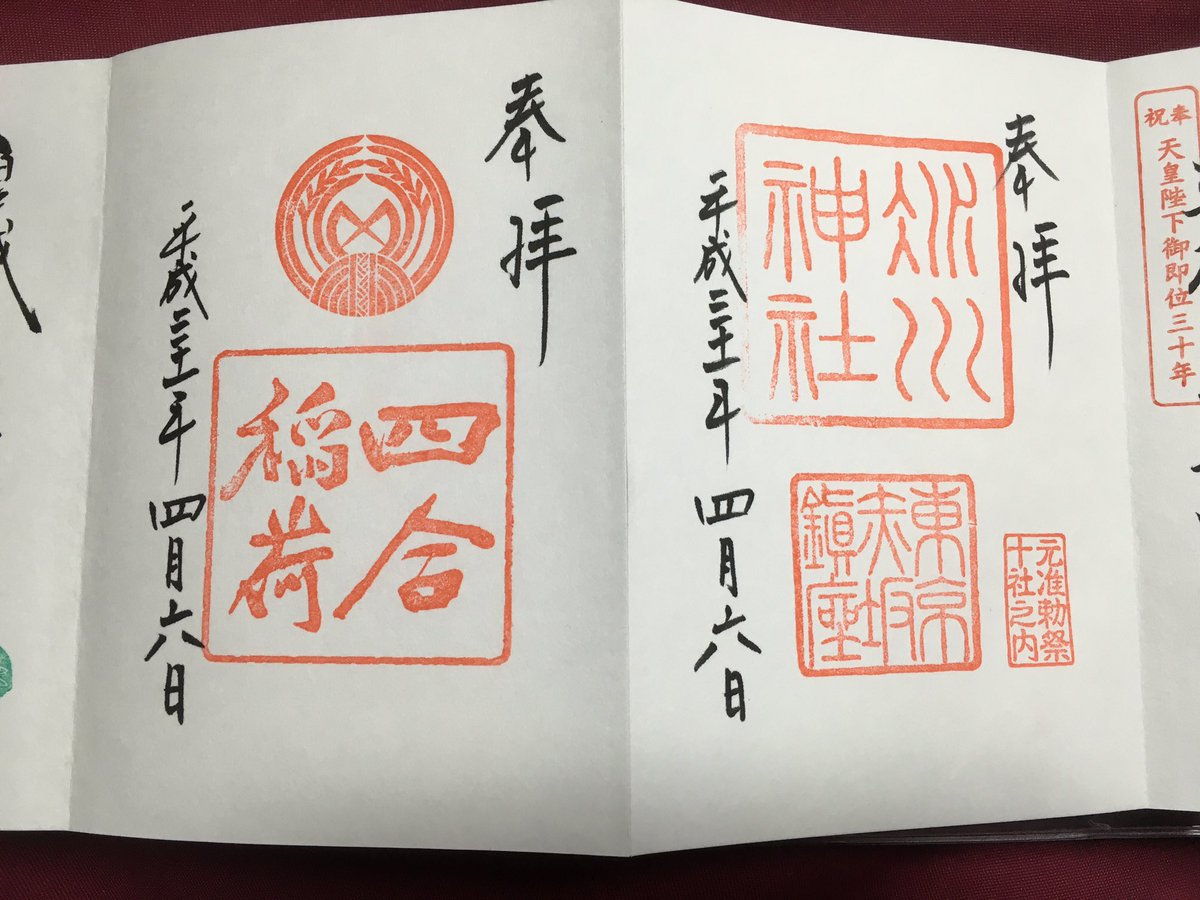 奉祝
天皇陛下御即位三十年
奉拝
氷川
神社
元准勅祭
十社之内
東京
赤坂
鎮座
平成三十一年四月六日
奉拝
四合
稲荷
平成三十一年四月六日